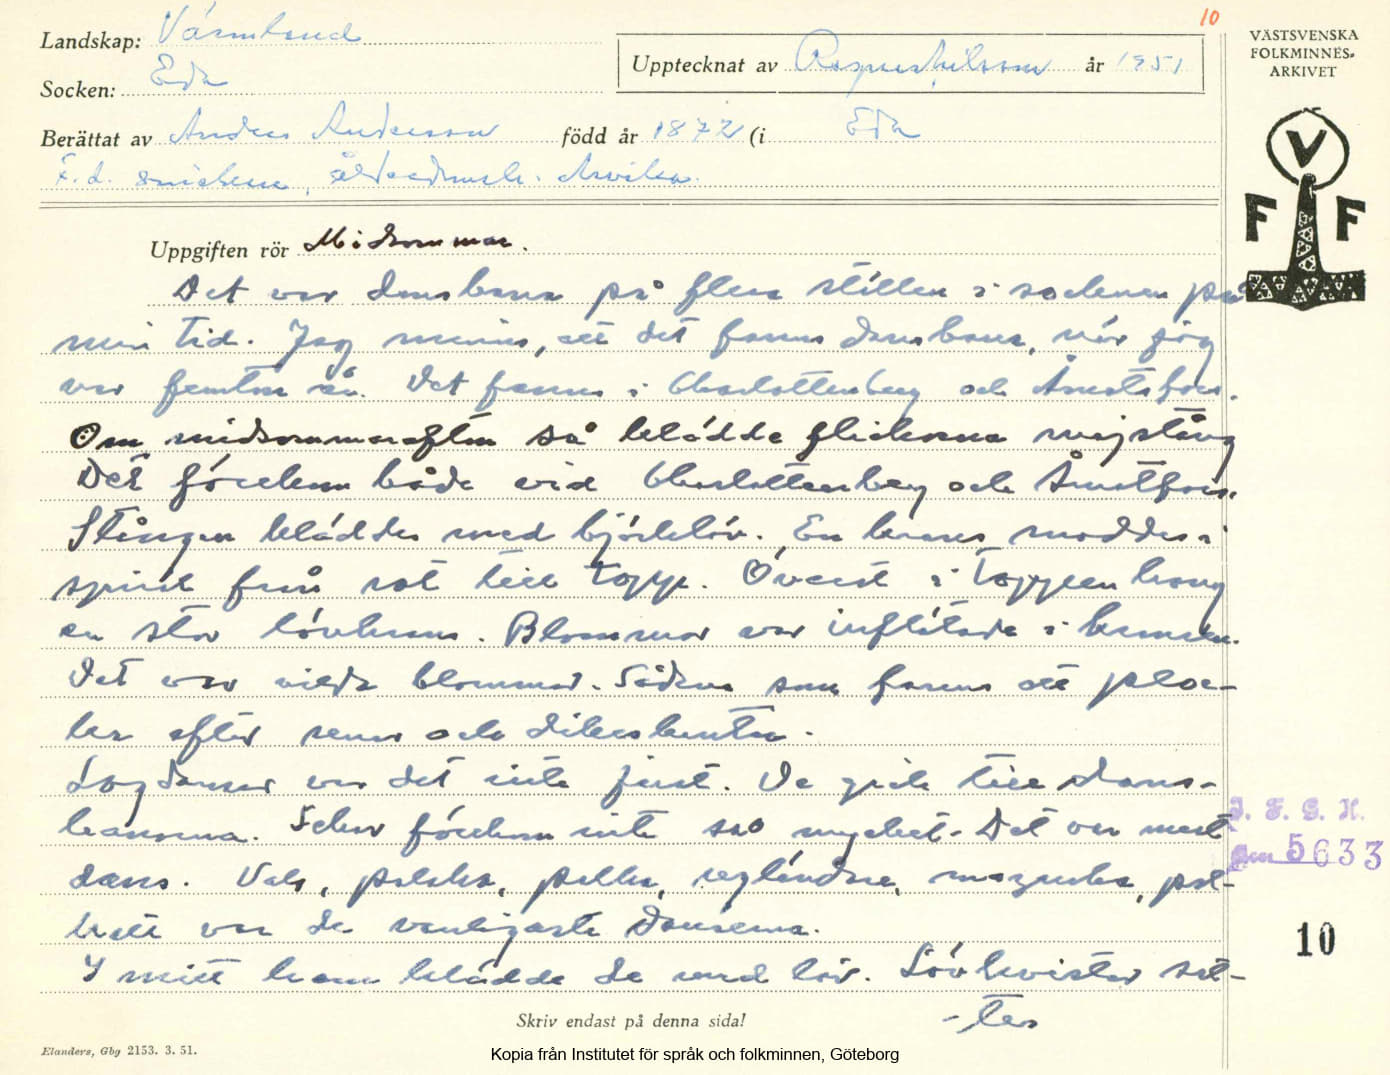 10
Landskap: Värmland
Socken: Eda
Upptecknat av Ragnar Nilsson år 1951
VÄSTSVENSKA
FOLKMINNES-
ARKIVET
V
F F
Berättat av Anders Andersson född år 1872 (i Eda
F.d. snickare, ålderdomsh. Arvika.
Uppgiften rör Midsommar.
Det var dansbana på flera ställen i socknen på
min tid. Jag minns, att det fanns dansbana, när jag
var femton år. Det fanns i Charlottenberg och Åmotsfors.
Om midsommarafton så klädde flickorna majstång
Det förekom både vid Charlottenberg och Åmotfors.
Stången kläddes med björklöv. En krans snoddes i
spiral från rot till topp. Överst i toppen hang
en stor lövkrans. Blommor var inflätade i kransen.
Det var vilda blommor. Sådana som fanns att ploc-
ka efter renar och dikeskanter.
Logdanser var det inte just. De gick till dans-
banorna. Lekar förekom inte så mycket. Det var mest
dans. Vals, polska, polka, regländer, mazurka, pol-
kett var de vanligaste danserna.
I mitt hem klädde de med löv. Lövkvistar sat-
-tes
I. F. G. H.
5633
10
Skriv endast på denna sida!
Elanders, Gbg 2153. 3. 51.
Kopia från Institutet för språk och folkminnen, Göteborg